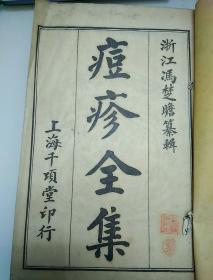 浙江馮楚瞻纂輯
痘疹全集
上海千頃堂印行